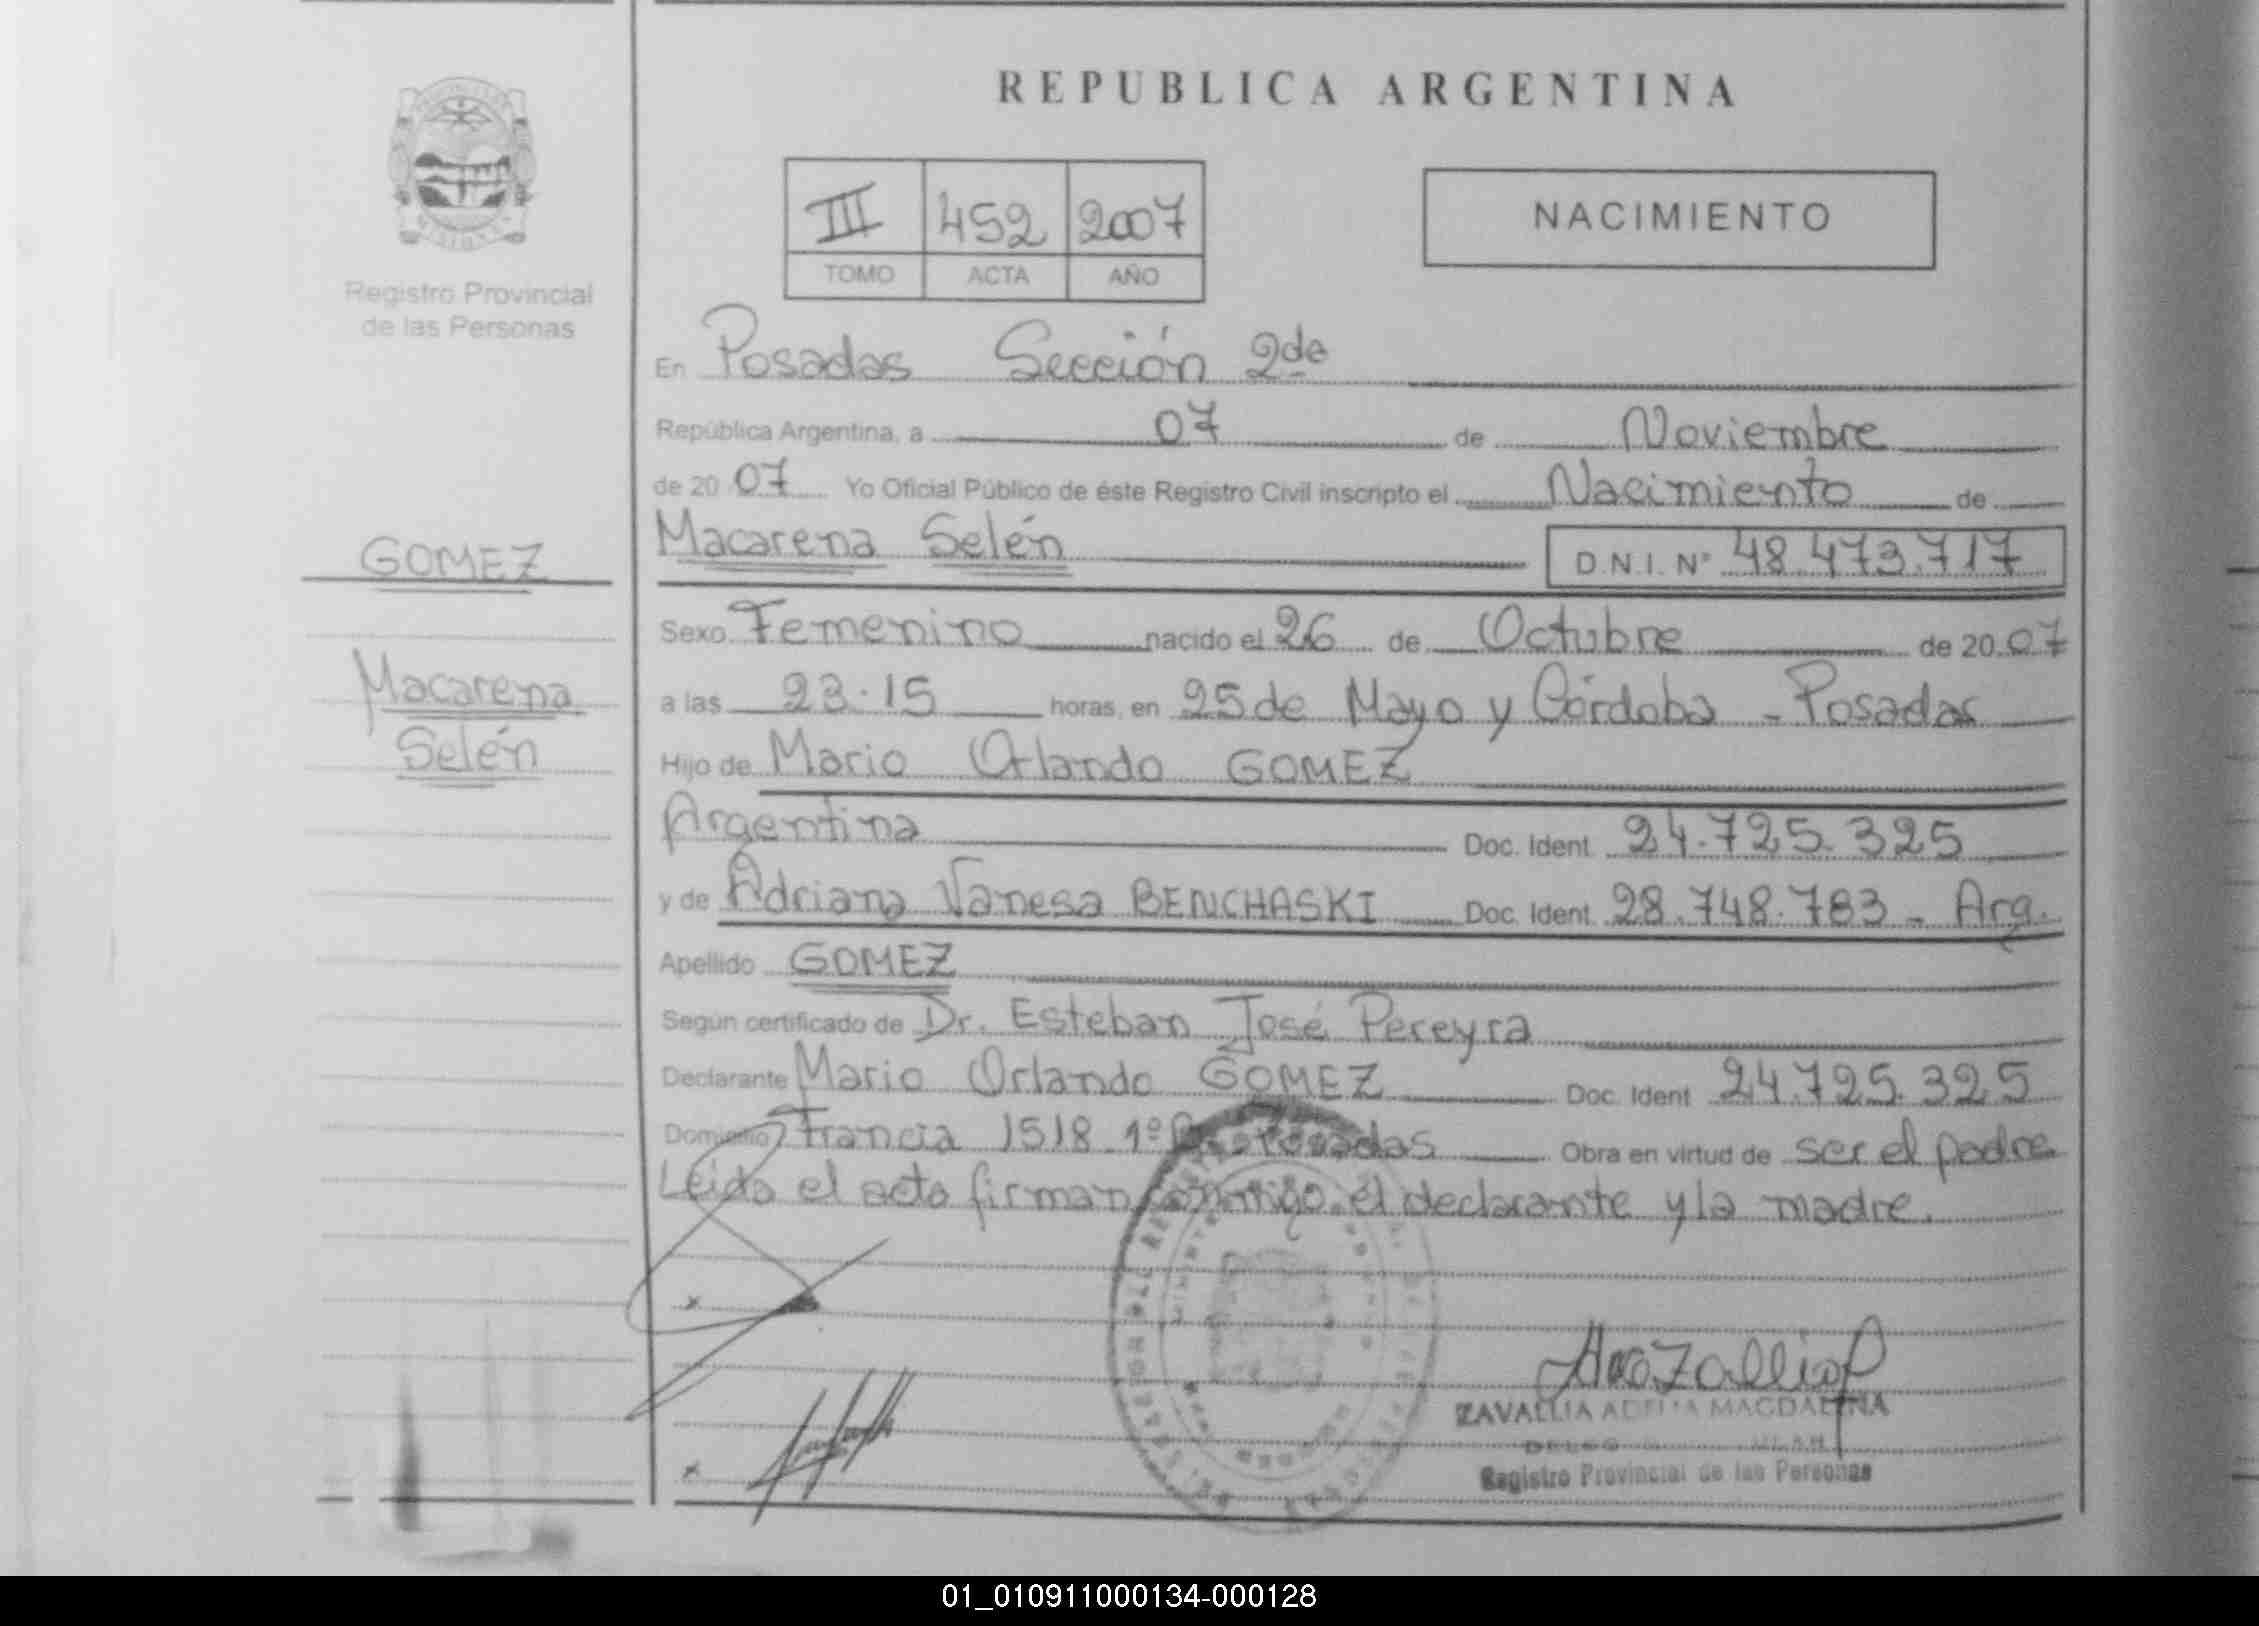 REPUBLICA ARGENTINA
PROVINCIA
MISIONES
Registro Provincial
de las Personas
III 452 2007
TOMO ACTA AÑO
NACIMIENTO
En Posadas Sección 2da
República Argentina, a 07 de Noviembre
de 20 07 Yo Oficial Público de éste Registro Civil inscripto el Nacimiento de
GOMEZ
Macarena Selén D.N.I. N° 48.473.717
Sexo Femenino nacido el 26 de Octubre de 20 07
Macarena
Selén
a las 23.15 horas, en 25 de Mayo y Córdoba - Posadas
Hijo de Mario Orlando GOMEZ
Argentina Doc. Ident 24.725.325
y de Adriana Vanesa BENCHASKI Doc. Ident 28.748.783 - Arg.
Apellido GOMEZ
Según certificado de Dr. Esteban José Pereyra
Declarante Mario Orlando GOMEZ Doc. Ident 24.725.325
Domicilio Francia 1518 1º Posadas Obra en virtud de ser el padre
Leida el acta firman conmigo el declarante y la madre.
x
x
ZAVALLIA ADELIA MAGDALENA
Registro Provincial de las Personas
01_010911000134-000128